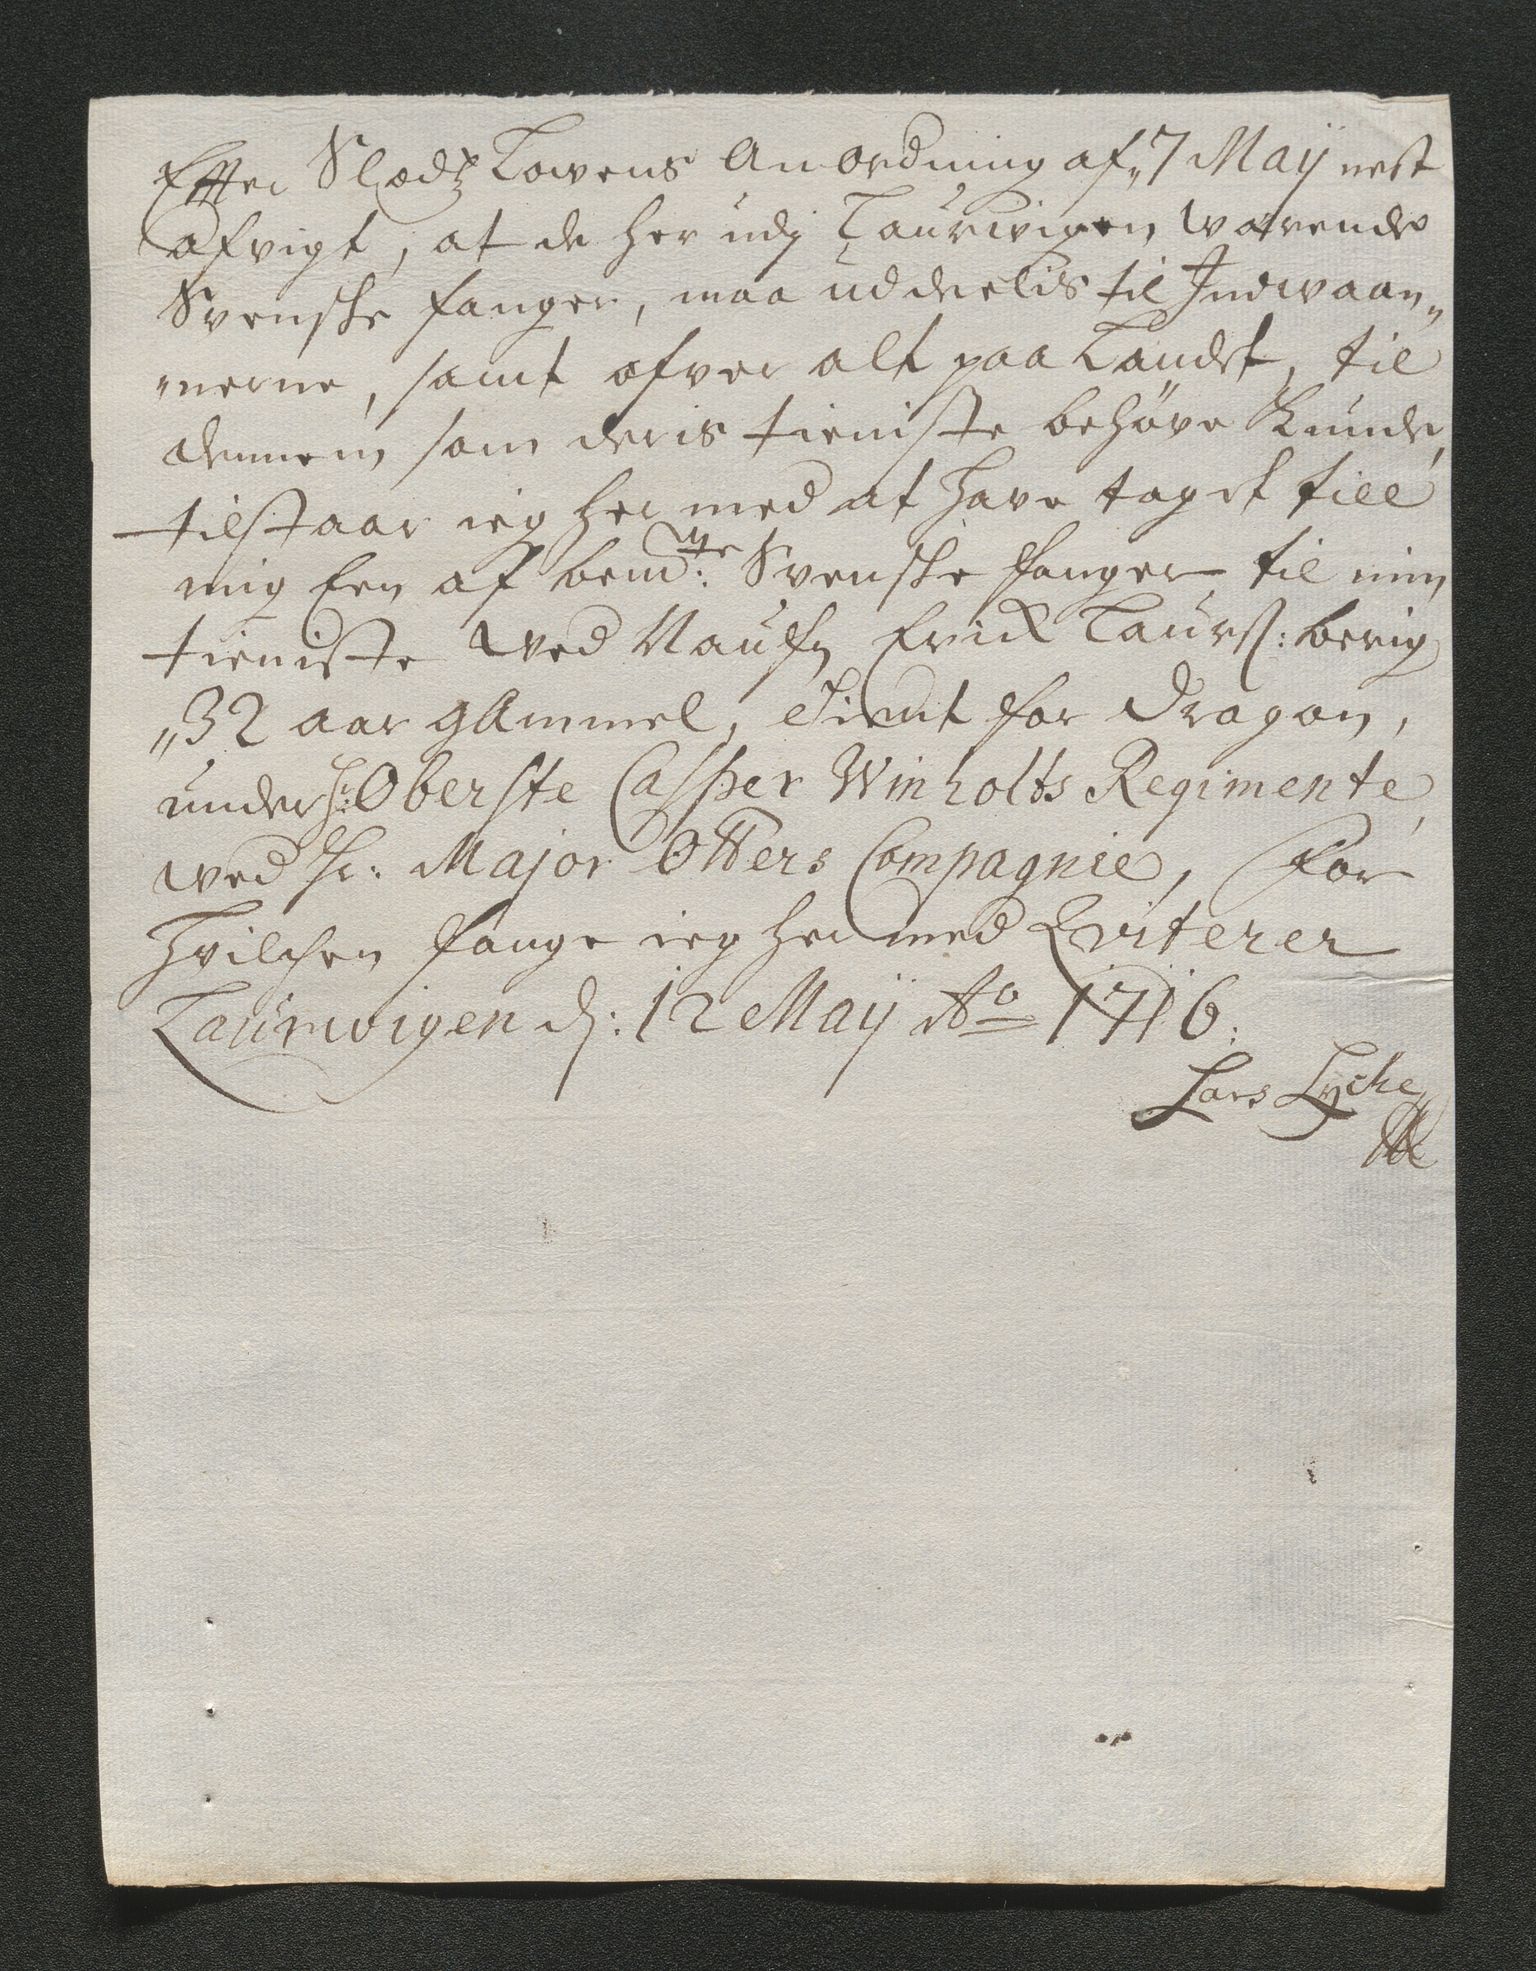 Effter Slodtz Lovens Anordning af 7 Maÿ nest
afvigt, at de her udj Laurvigen værende
Svenske fanger, maa uddeelis til Indvaan„
„nerne, samt ofver alt paa Landet, til
dennem som deris tieniste behöve kunde,
tilstaar ieg her med at have taget till
mig Een af bemte: Svenske fanger, til min
tieniste ved Naufn Erick Laurs: berig
„32 aar gammel, Tient for Dragon,
under Hr: Oberste Casper Winholts Regimente,
ved Hr: Major Otters Compagnie, for
hvilchen fange ieg her med Qviterer
Laurwigen d: 12 Maÿ Ao 1716:
Lars Lycke